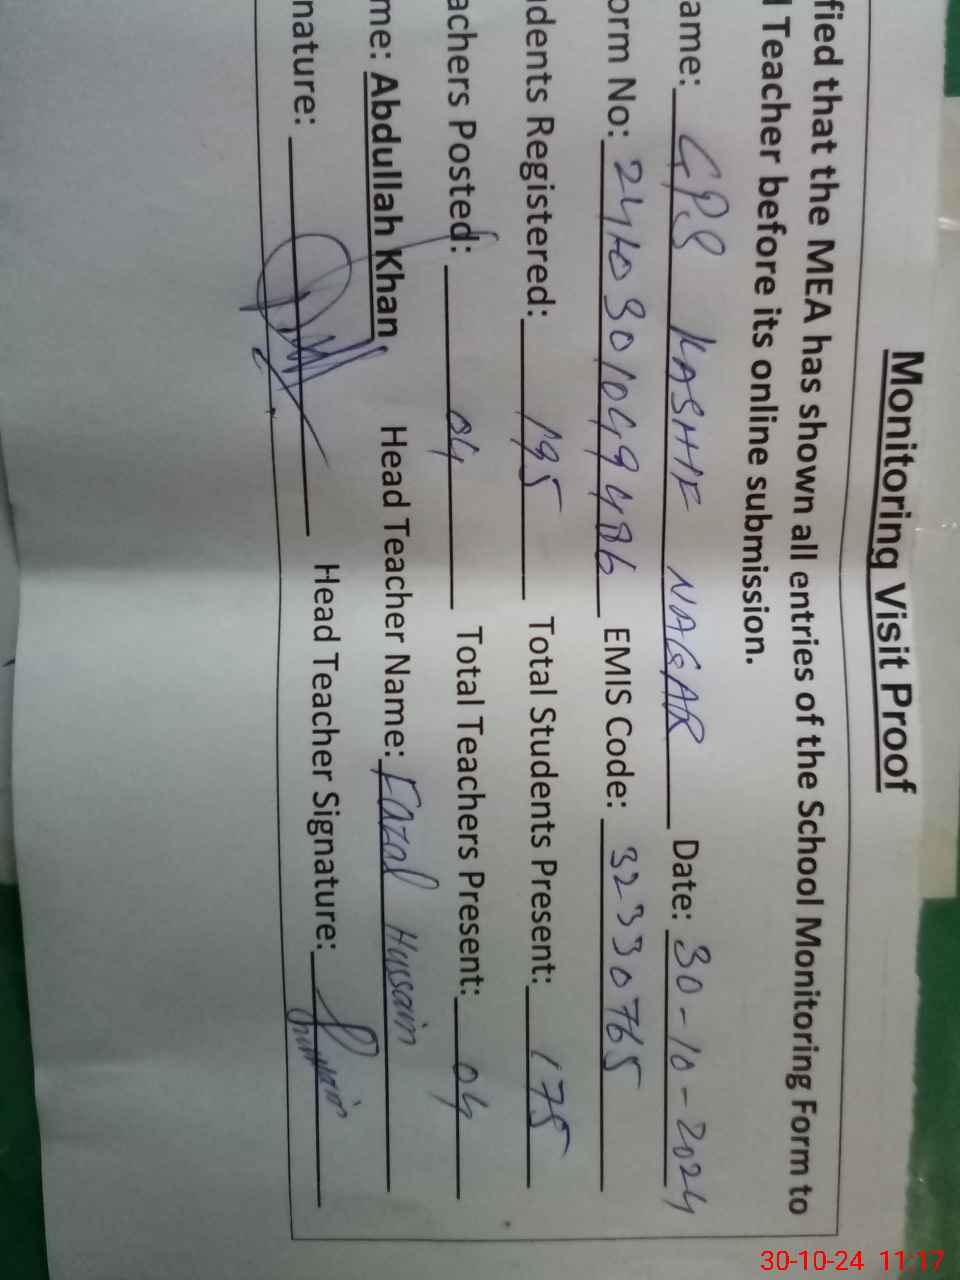 Monitoring Visit Proof
fied that the MEA has shown all entries of the School Monitoring Form to
Teacher before its online submission.
ame: GPS KASHIF NAGAR Date: 30-10-2024
orm No: EMIS Code: 32330765
dents Registered: 195 Total Students Present: 175
achers Posted: 04 Total Teachers Present: 04
me: Abdullah Khan Head Teacher Name: Fazal Hussain
nature: Head Teacher Signature:
30-10-24 11:17